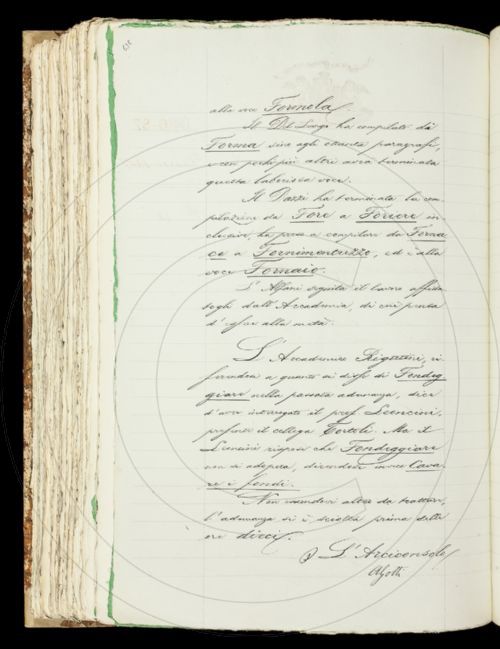 alla voce Formola.
Il Del Lungo ha compilato da
Forma sino agli ottanta paragrafi,
e con pochi più altri avrà terminata
questa laboriosa voce.
Il Dazzi ha terminata la com-
pilazione da Fore a Foriere in-
clusive, ha preso a compilare da Forna-
ce a Fornimentuzzo, ed è alla
voce Fornaio.
L'Alfani seguita il lavoro affida-
togli dall'Accademia, di cui pensa
d'esser alla metà.
L'Accademico Rigutini, ri-
ferendosi a quanto si disse di Fendig-
giare nella passata adunanza, dice
d'aver interrogato il prof.
presente il collega Tortoli. Ma il
rispose che Fendiggiare
non si adopera, dicendosi invece Cava-
re i fondi.
Non essendovi altro da trattare,
l'adunanza si è sciolta prima delle
ore dieci.
L'Arciconsolo